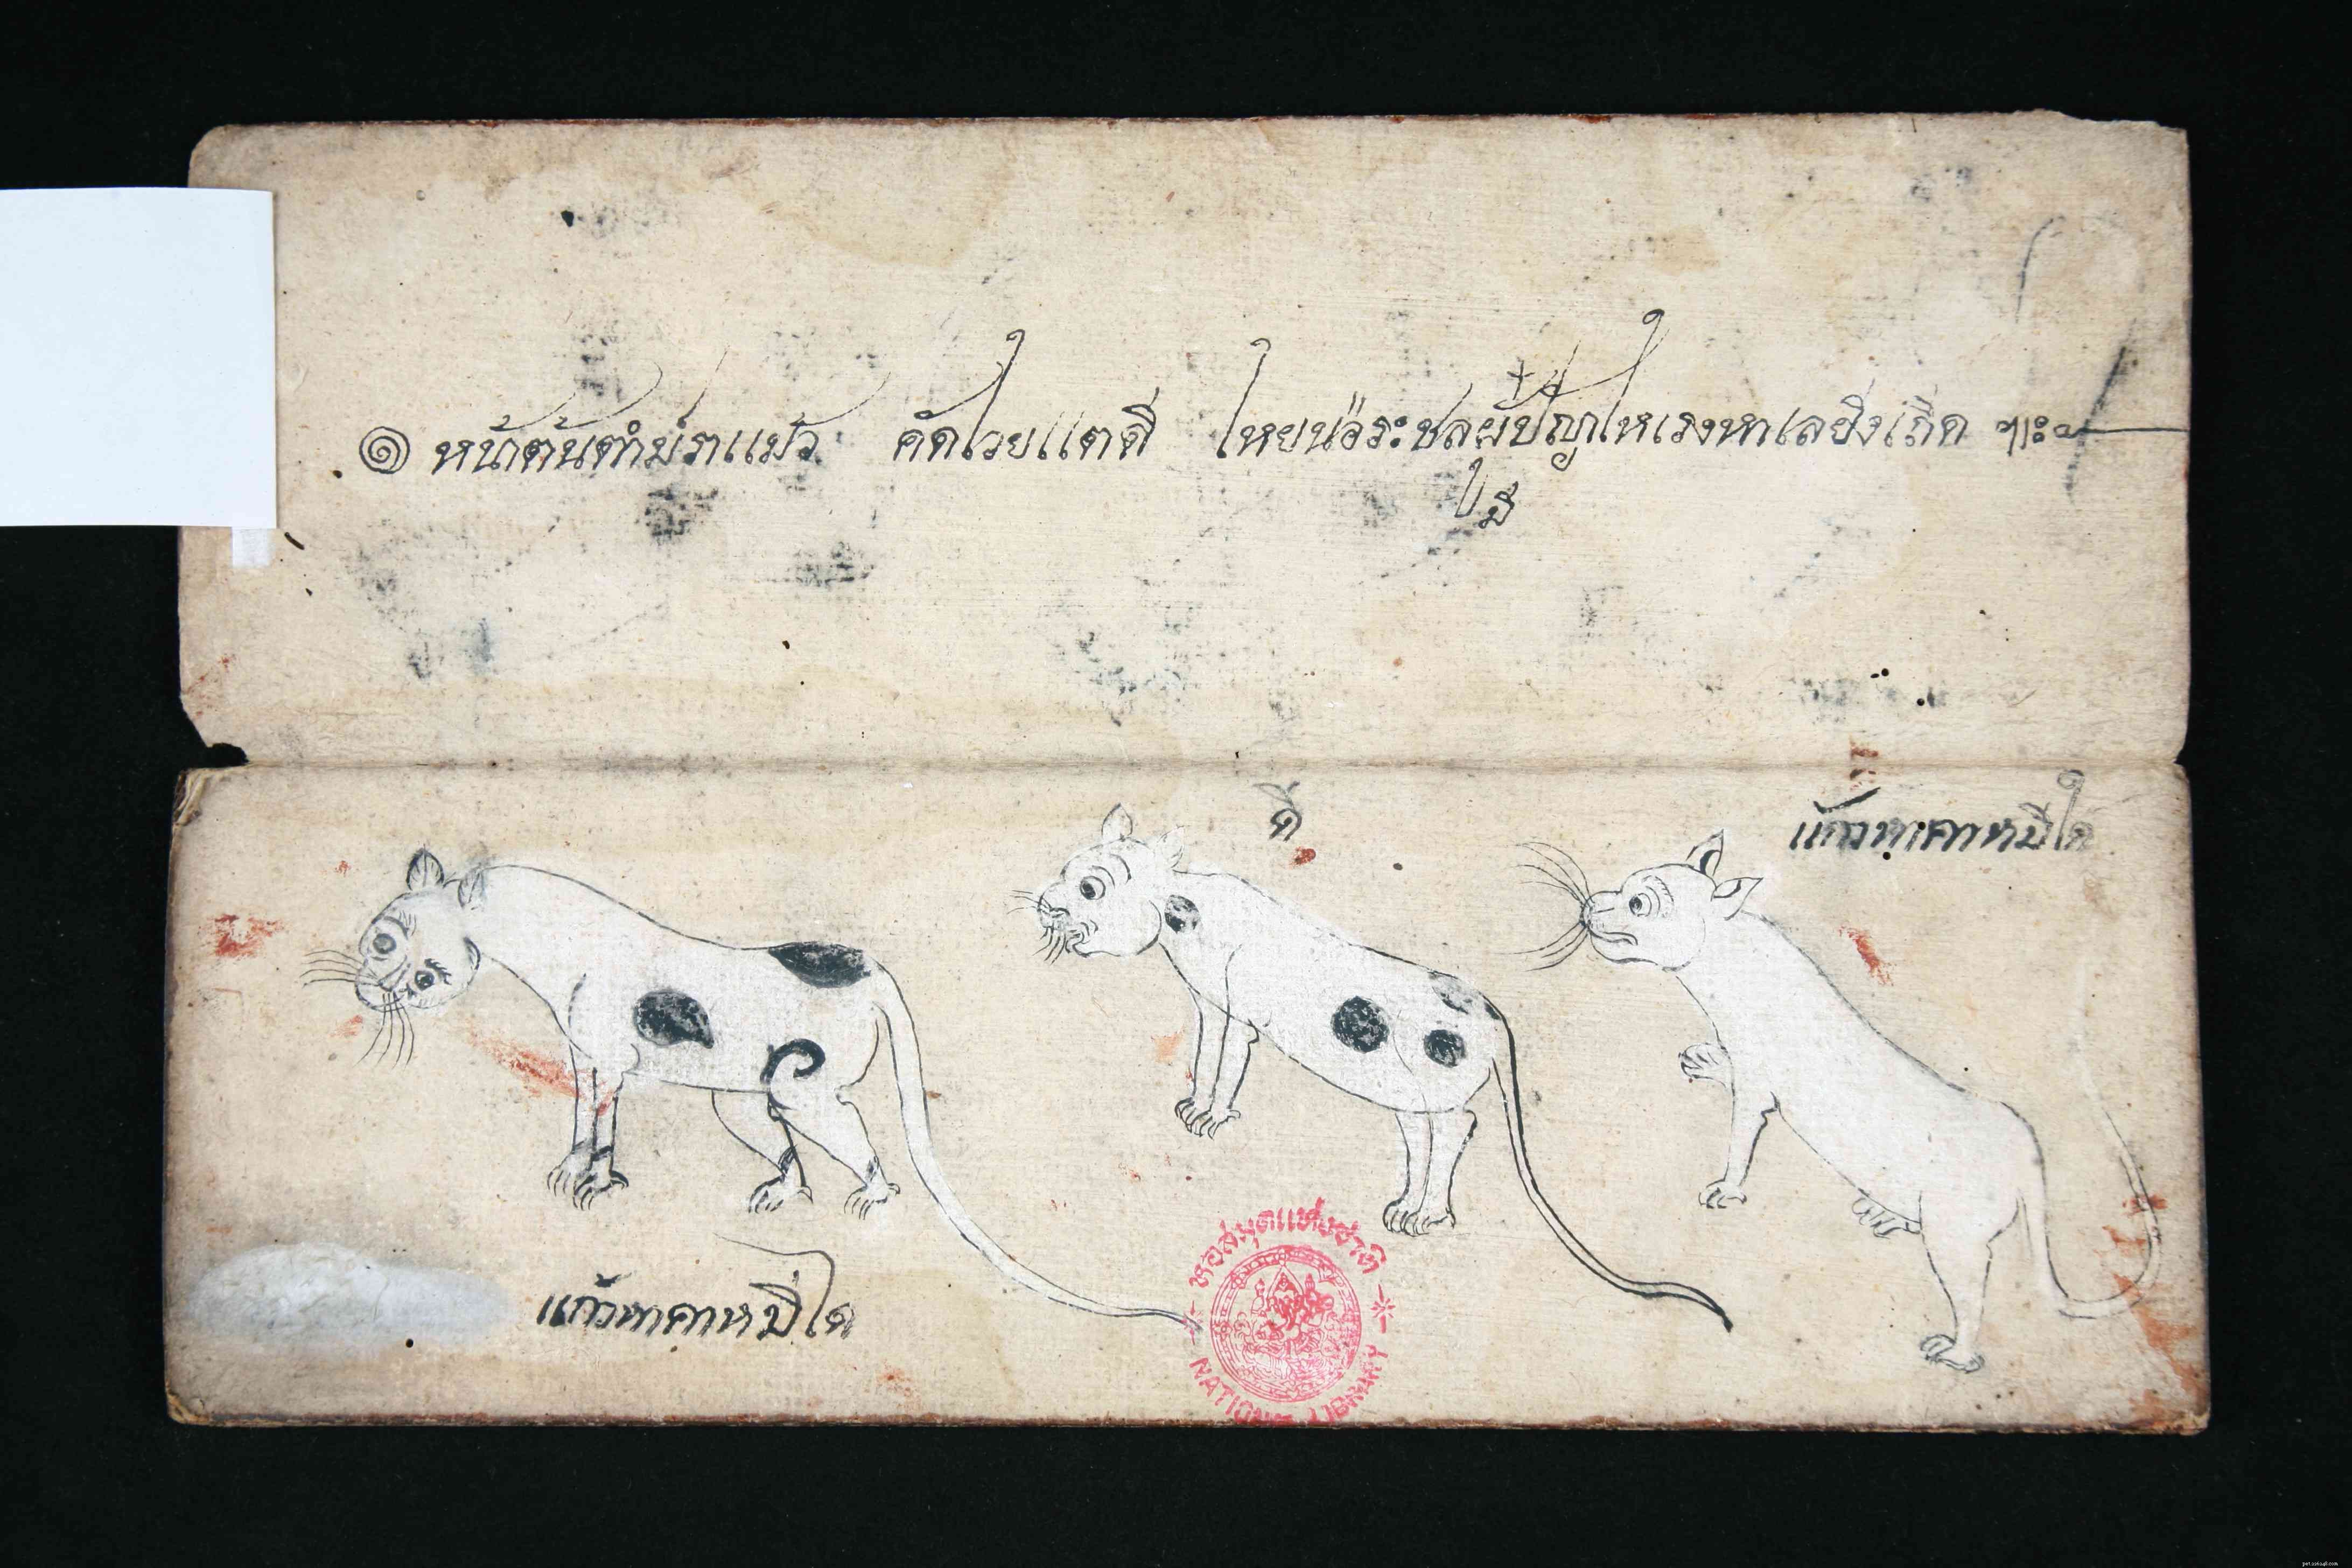 ๑ หน้าต้นตำม่ราแม้ว คัดไวยแตดี่ ไหยน่อระชลผู้ปัญญไหเรงหาเลยิ่งเถีด ฯะ
ใมี
ดี่
แก้วหาคาหมีใด
แก้วหาคาหมีใด
หอสมุดแห่งชาติ
NATIONAL LIBRARY